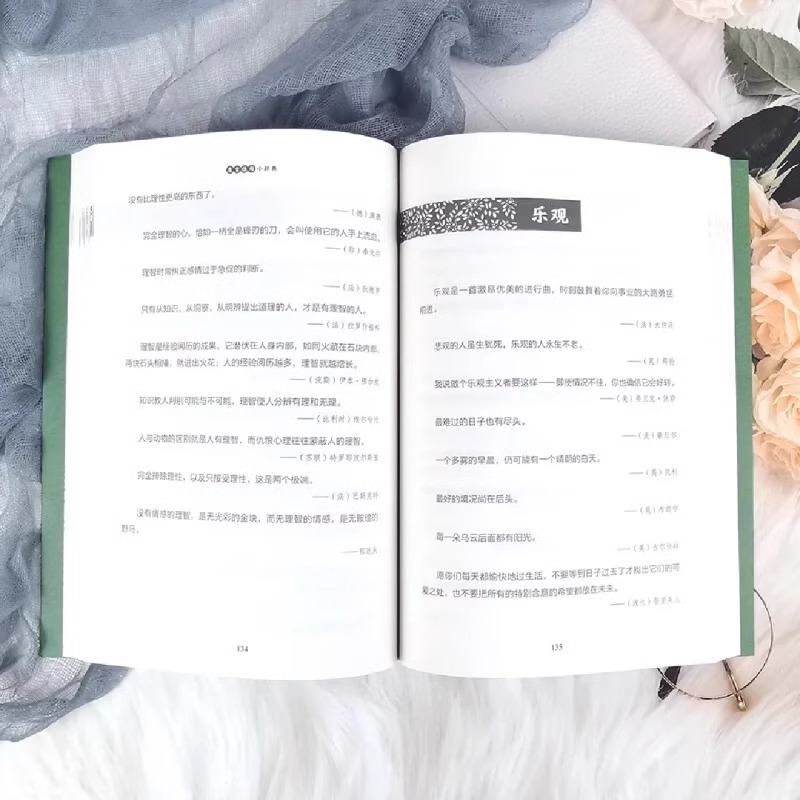 小辞典
没有比理性更高的东西了。
——（德）康德
完全理智的心，恰如一柄全是锋刃的刀，会叫使用它的人手上流血。
——（印）泰戈尔
理智时常纠正感情过于急促的判断。
——（法）狄德罗
只有从知识、从洞察、从明辨提出道理的人，才是有理智的人。
理智是经验阅历的成果，它潜伏在人身内部，如同火藏在石块内部，
两块石头相撞，就迸出火花；人的经验阅历越多，理智就越增长。
知识教人判别可能与不可能，理智使人分辨有理和无理。
——（比利时）
人与动物的区别就是人有理智，而仇恨心理往往蒙蔽人的理智。
——（苏联）特罗耶波尔斯基
完全排除理性，以及只接受理性，这是两个极端。
——（法）巴斯克特
没有情感的理智，是无光彩的金块，而无理智的情感，是无鞍镫的
野马。
——郁达夫
134
乐观
乐观是一首激昂优美的进行曲，时刻鼓舞着你向事业的大路勇猛
前进。
——（法）大仲马
悲观的人虽生犹死，乐观的人永生不老。
——（英）拜伦
我说做个乐观主义者要这样——即使情况不佳，你也确信它会好转。
——（美）弗兰克·休斯
最难过的日子也有尽头。
一个多雾的早晨，仍可能有一个晴朗的白天。
最好的境况尚在后头。
——（英）布朗宁
每一朵乌云后面都有阳光。
——（英）吉尔伯特
愿你们每天都愉快地过生活，不要等到日子过去了才找出它们的可
爱之处，也不要把所有的特别合意的希望都放在未来。
——（波兰）居里夫人
135